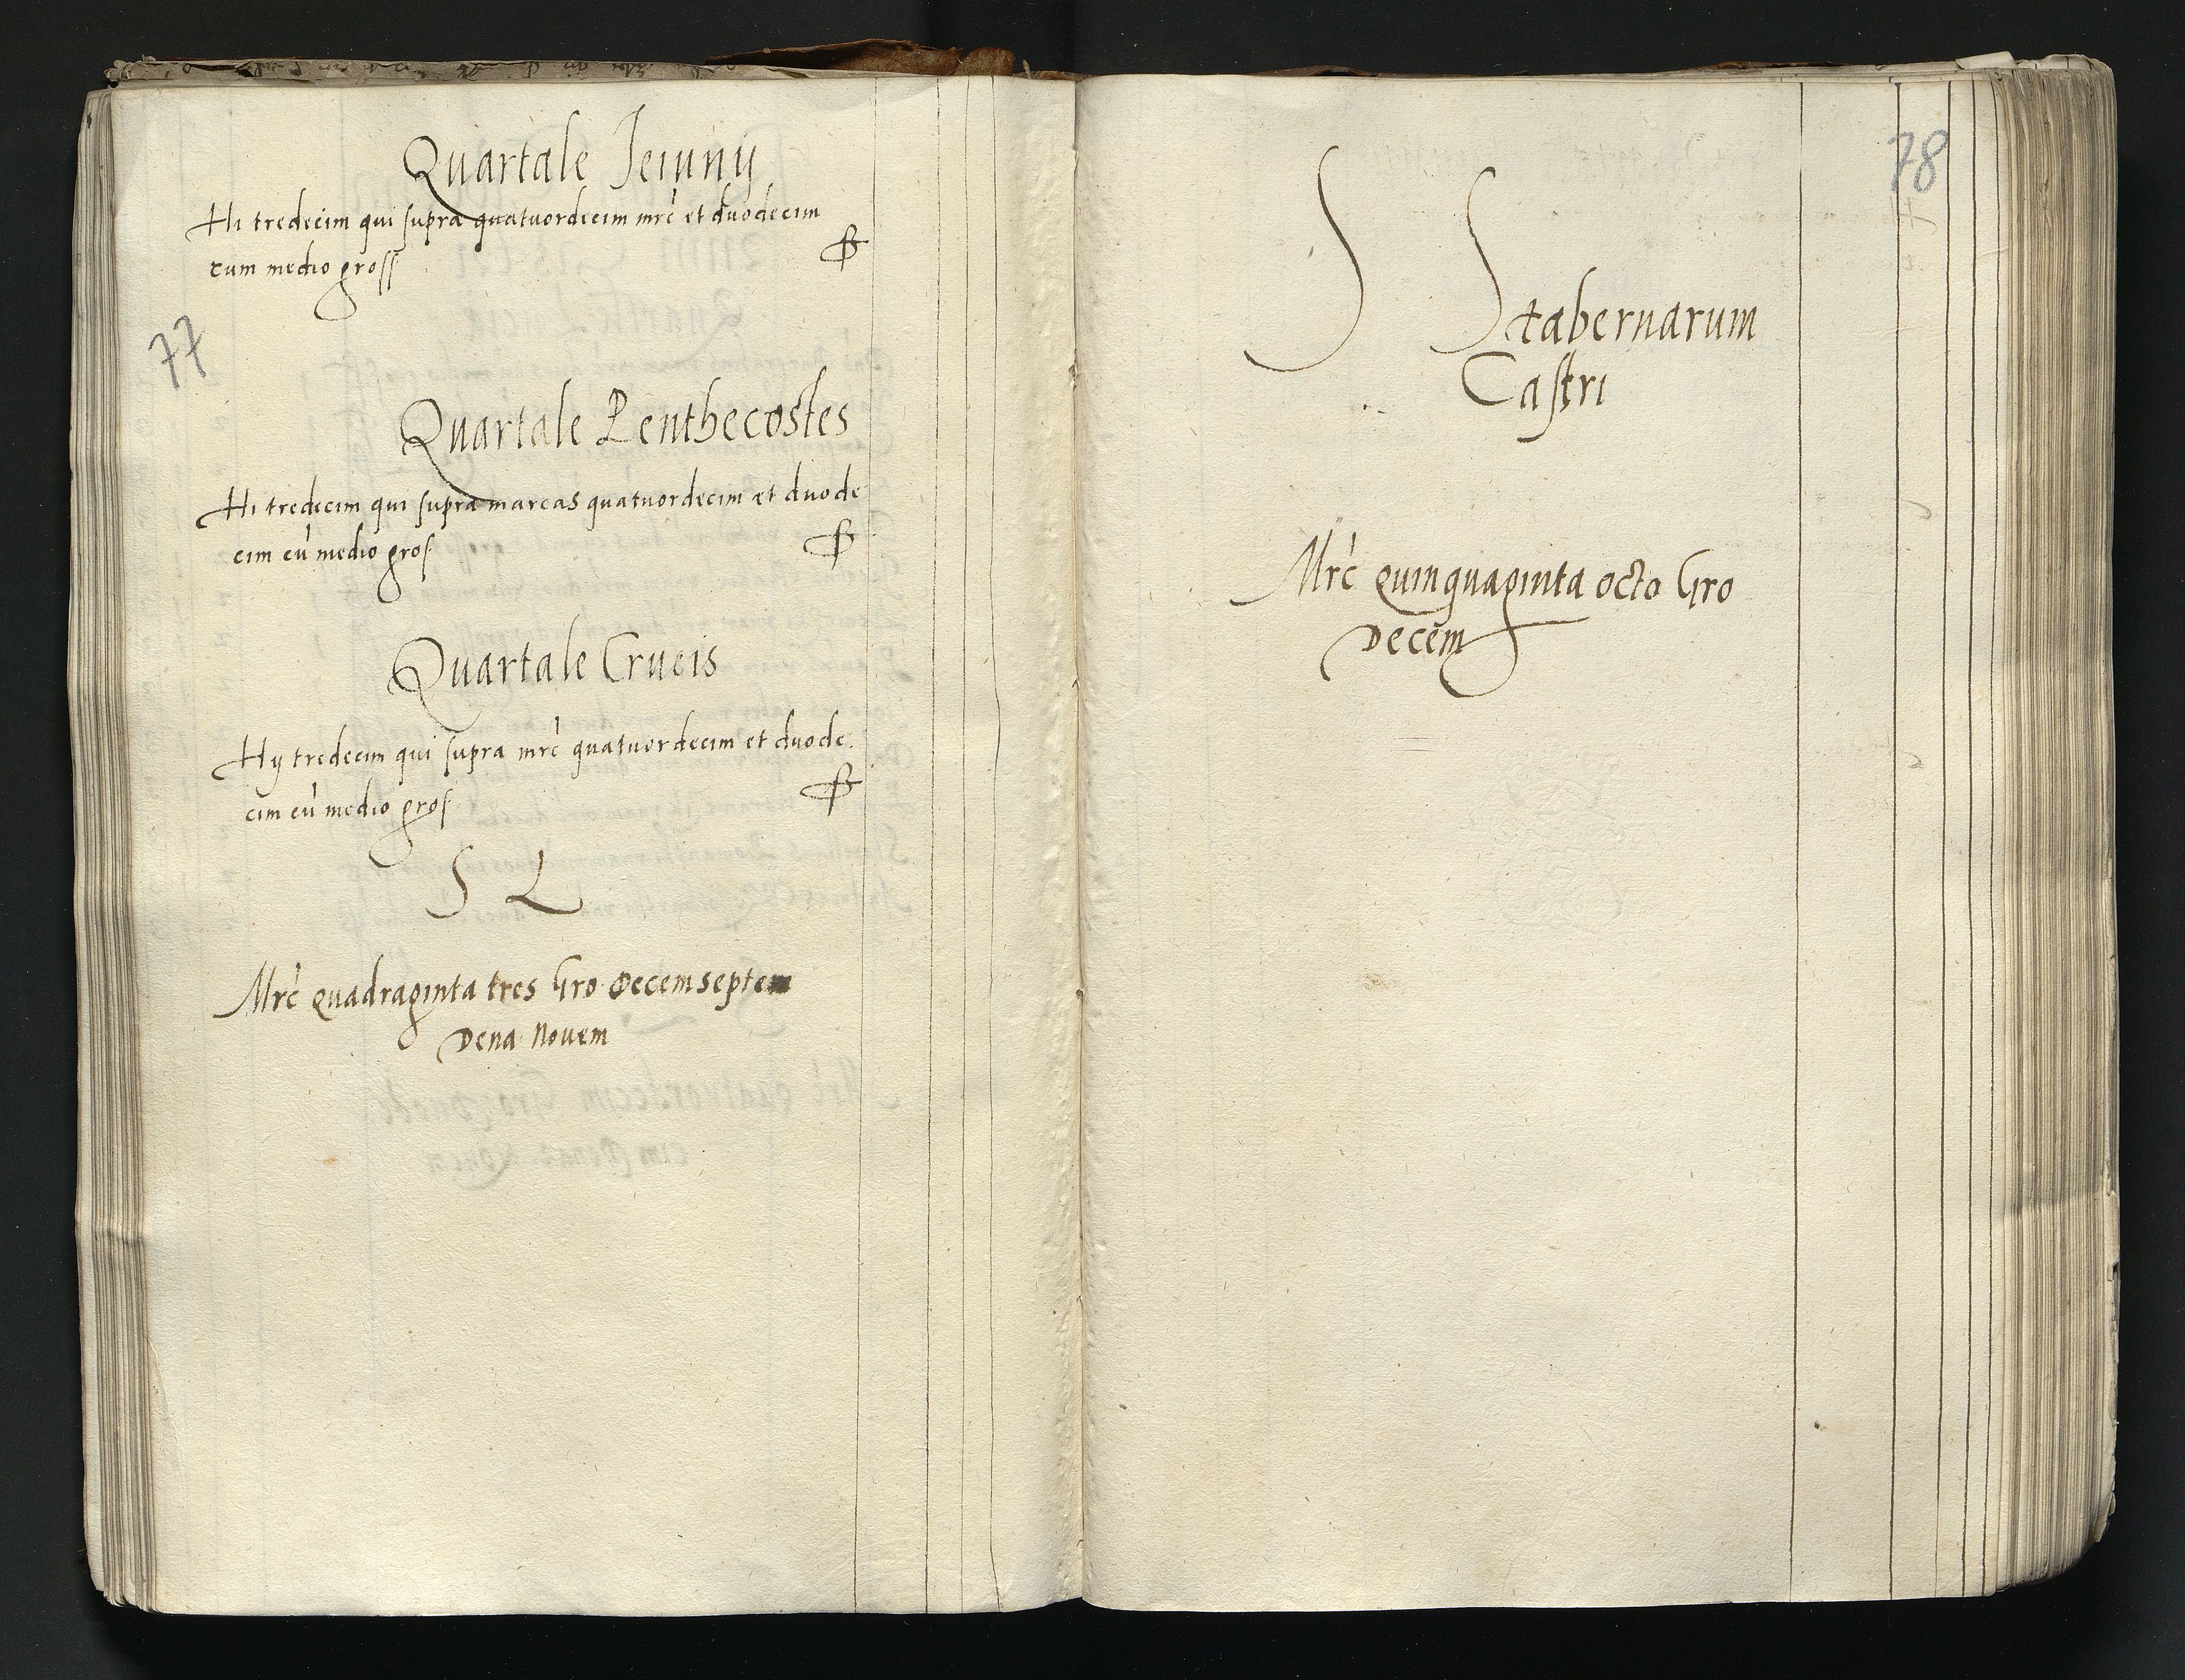 Quartale Jeiunij
Hi tredecim qui supra quatuordecim mrc et duodecim
cum medio gross
77
Quartale Penthecostes
Hi tredecim qui supra marcas quatuordecim et duode
cim cu medio gros
Quartale Crucis
Hij tredecim qui supra mrc quatuordecim et duode
cim cu medio gros
S Q
Mrc quadraginta tres Gro decemseptem
Dena Nouem
78
S Stabernarum
Castri
Mrc quinquaginta octo Gro
Decem